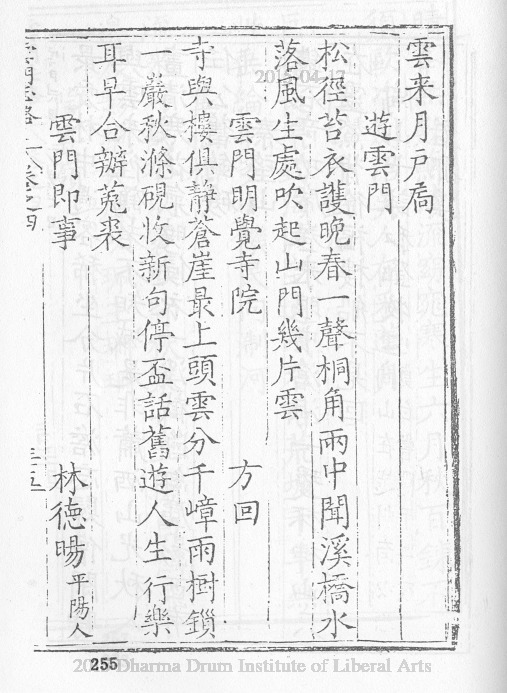 雲来月戸扃
遊雲門
松徑苔衣護晚春一聲桐角兩中聞溪橋水
落風生處吹起山門幾片雲
雲門明覺寺院 方回
寺與樓俱静蒼崖最上頭雲分千嶂雨樹鎖
一巖秋滌硯收新句停盃話舊遊人生行樂
耳早合辦菟裘
雲門即事 林德暘平陽人
雲門志略 卷之四
255
Dharma Drum Institute of Liberal Arts